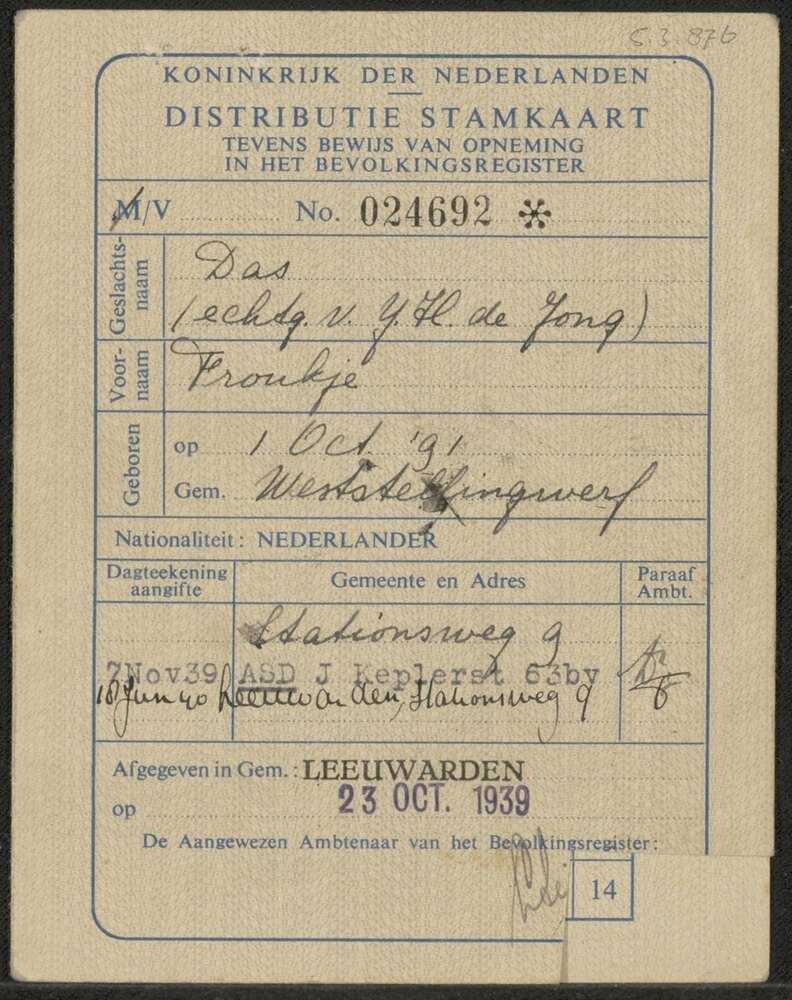 5.3.87b
KONINKRIJK DER NEDERLANDEN
DISTRIBUTIE STAMKAART
TEVENS BEWIJS VAN OPNEMING
IN HET BEVOLKINGSREGISTER
M/V No. 024692 *
Geslachts-
naam
Das
(echtg. v. Y.H. de Jong)
Voor-
naam
Froukje
Geboren
op 1 Oct. '91
Gem. Weststellingwerf
Nationaliteit: NEDERLANDER
Dagteekening
aangifte
Gemeente en Adres
Paraaf
Ambt.
Stationsweg 9
7Nov39 ASD J Keplerst 63bv
18 Jun 40 Leeuwarden, Stationsweg 9
Afgegeven in Gem.: LEEUWARDEN
op 23 OCT. 1939
De Aangewezen Ambtenaar van het Bevolkingsregister:
14